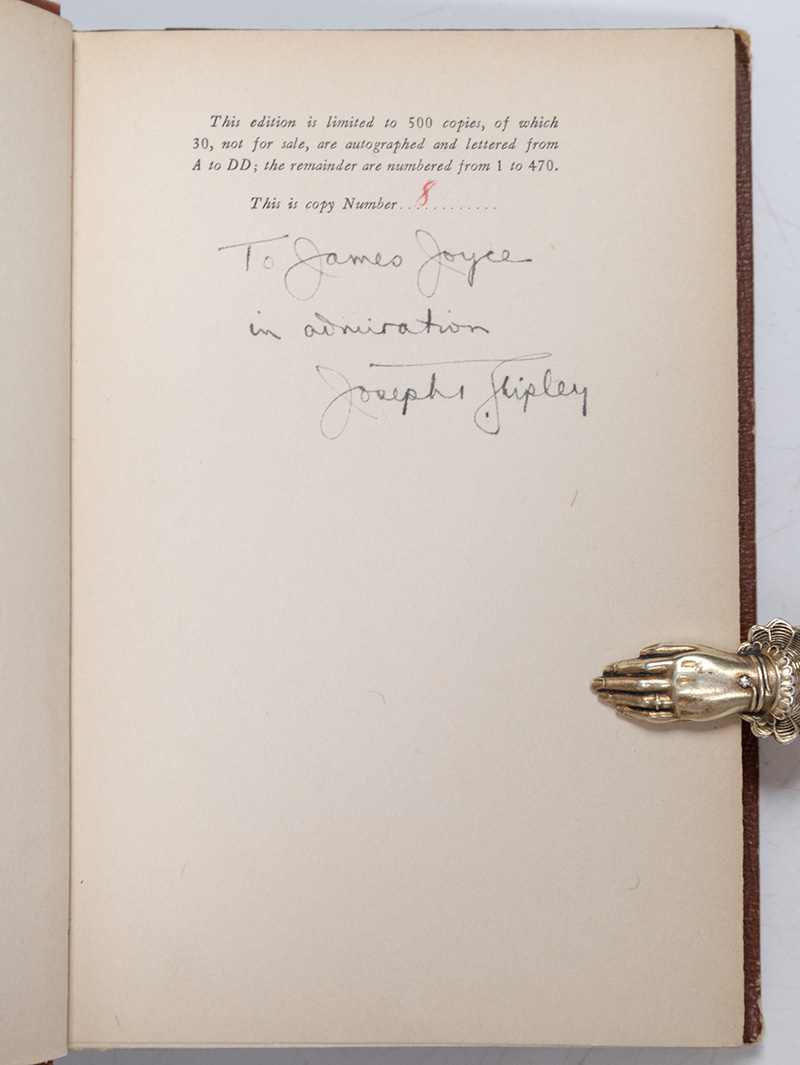 This edition is limited to 500 copies, of which
30, not for sale, are autographed and lettered from
A to DD; the remainder are numbered from 1 to 470.
This is copy Number..8..........
To James Joyce
in admiration
Joseph T Shipley